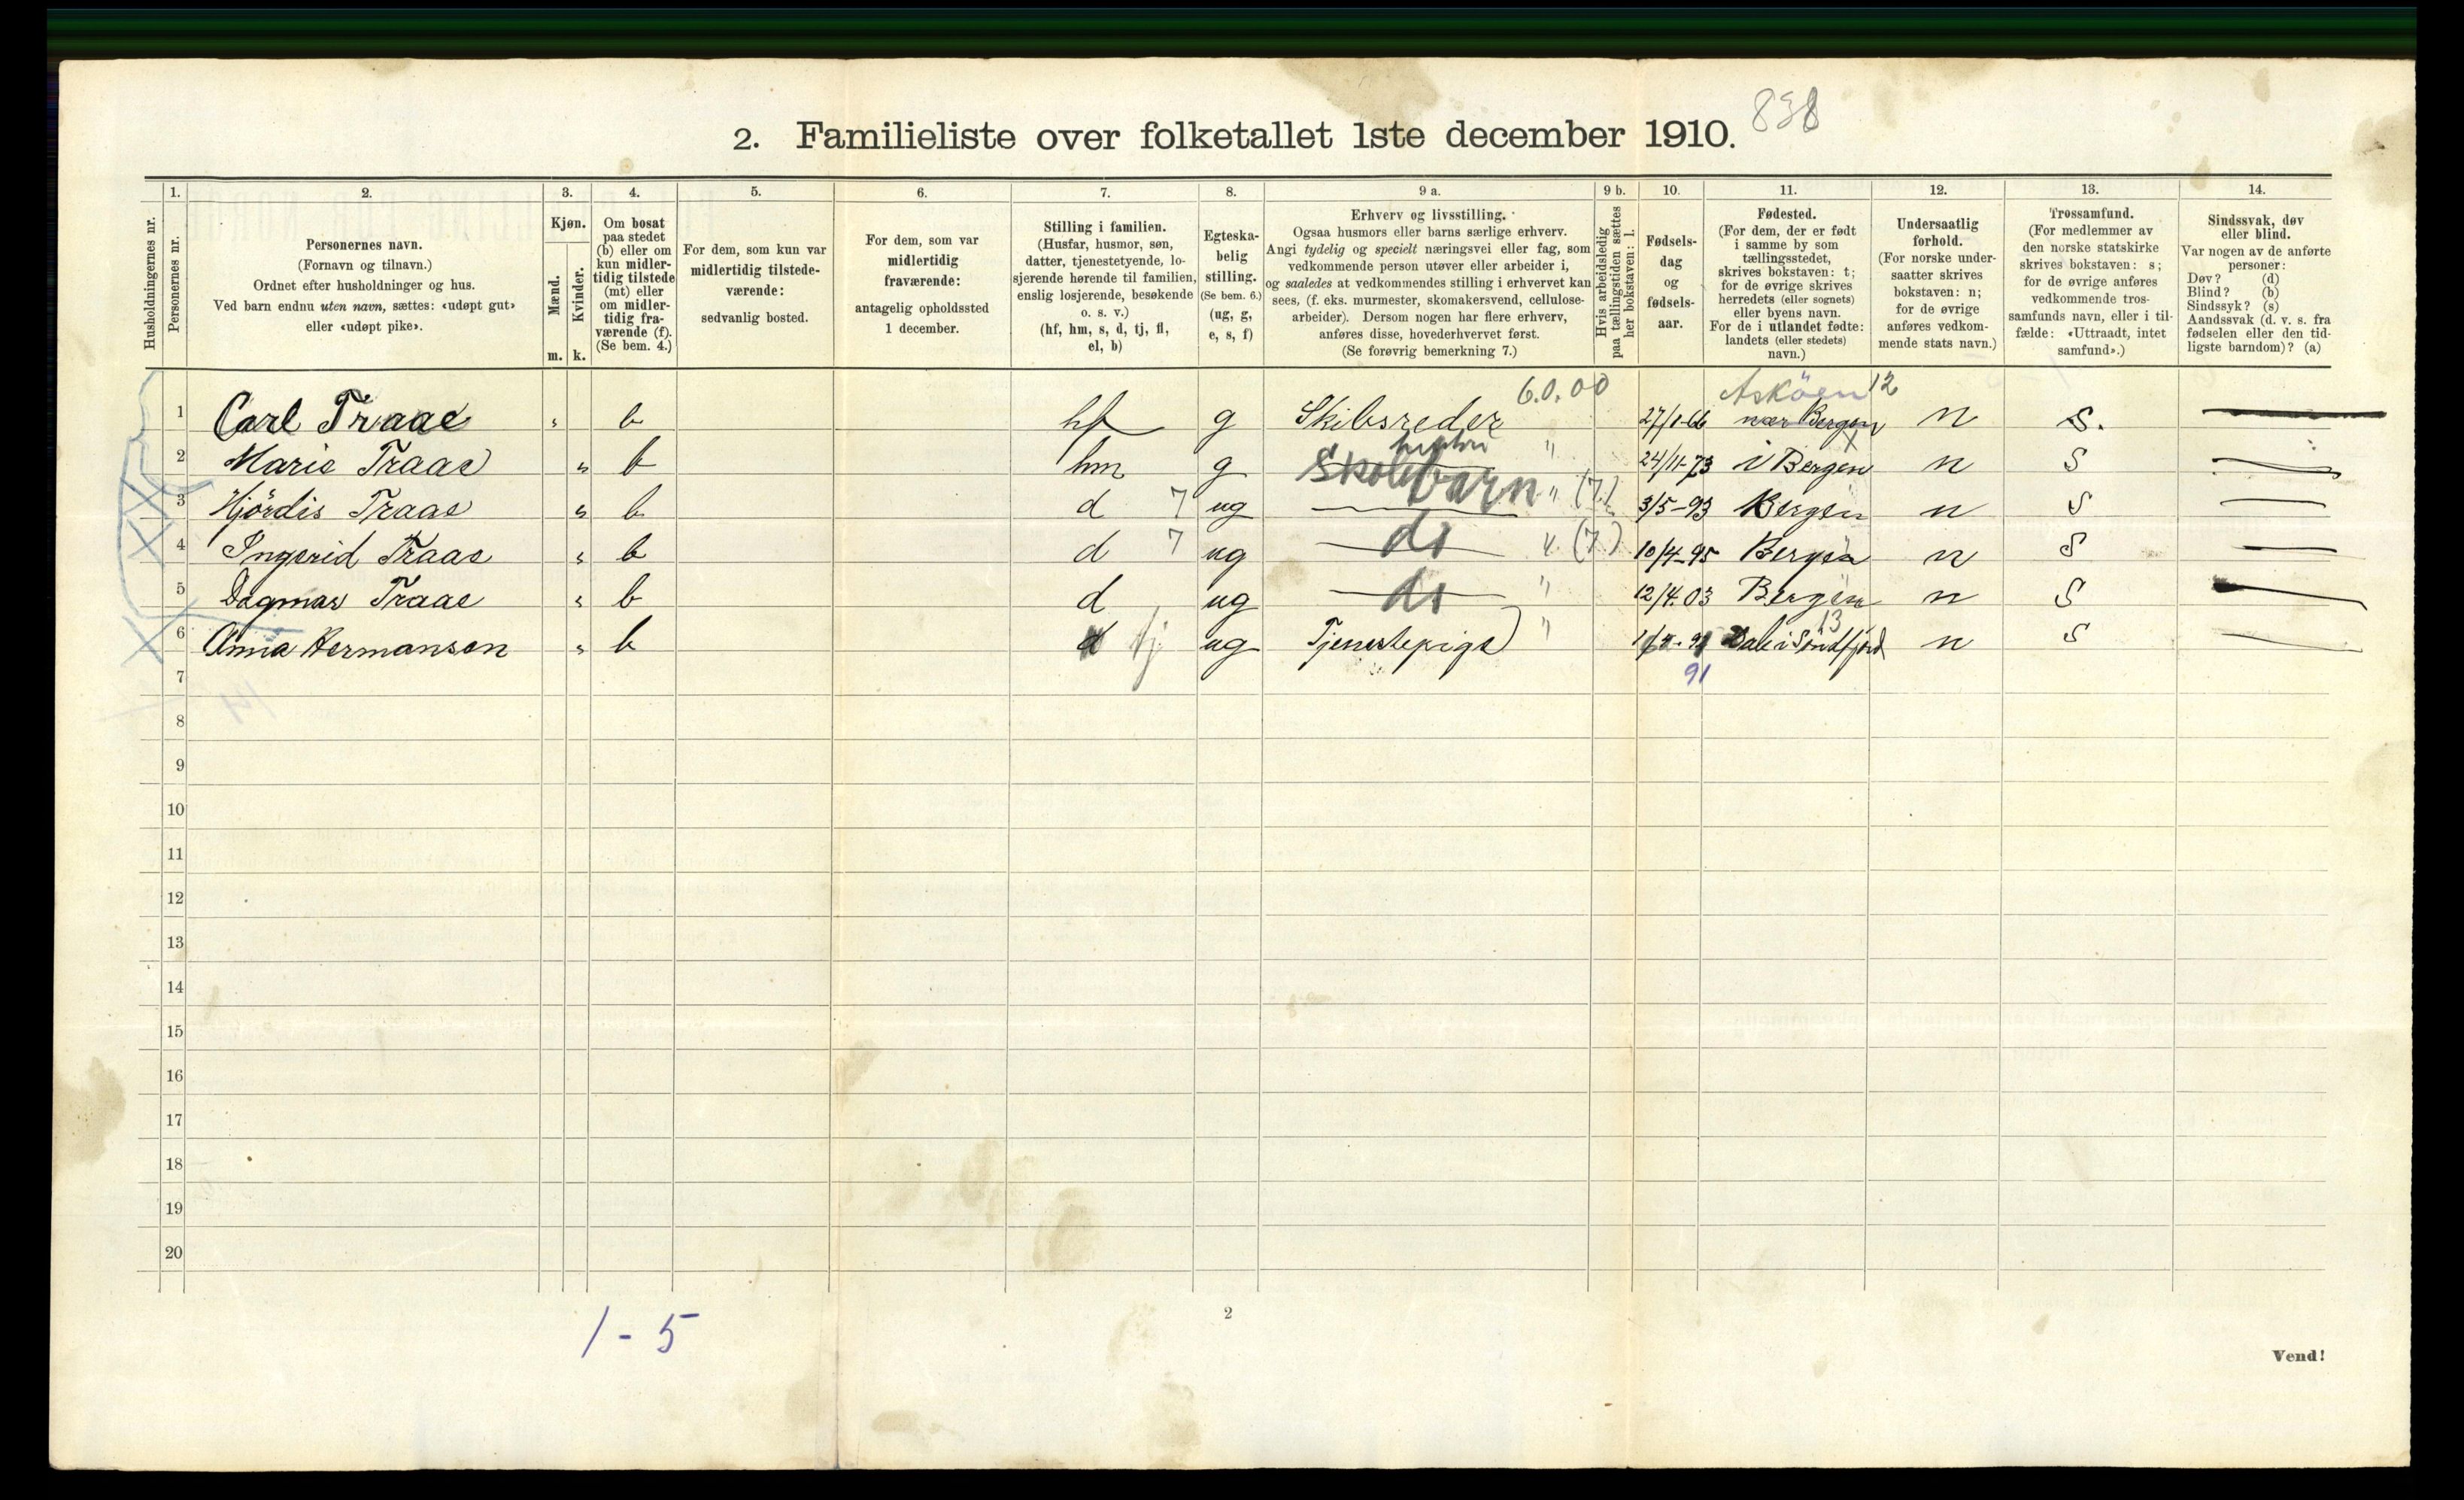 2. Familieliste over folketallet 1ste december 1910. 838
Husholdningernes nr.
1.
Personernes nr.
2.
Personernes navn.
(Fornavn og tilnavn.)
Ordnet efter husholdninger og hus.
Ved barn endnu uten navn, sættes: «udøpt gut»
eller «udøpt pike».
3.
Kjøn.
Mænd.
Kvinder.
m. k.
4.
Om bosat
paa stedet
(b) eller om
kun midler-
tidig tilstede
(mt) eller
om midler-
tidig fra-
værende (f).
(Se bem. 4.)
5.
For dem, som kun var
midlertidig tilstede-
værende:
sedvanlig bosted.
6.
For dem, som var
midlertidig
fraværende:
antagelig opholdssted
1 december.
7.
Stilling i familien.
(Husfar, husmor, søn,
datter, tjenestetyende, lo-
sjerende hørende til familien,
enslig losjerende, besøkende
o. s. v.)
(hf, hm, s, d, tj, fl,
el, b)
8.
Egteska-
belig
stilling.
(Se bem. 6.)
(ug, g,
e, s, f)
9 a.
Erhverv og livsstilling.
Ogsaa husmors eller barns særlige erhverv.
Angi tydelig og specielt næringsvei eller fag, som
vedkommende person utøver eller arbeider i,
og saaledes at vedkommendes stilling i erhvervet kan
sees, (f. eks. murmester, skomakersvend, cellulose-
arbeider). Dersom nogen har flere erhverv,
anføres disse, hovederhvervet først.
(Se forøvrig bemerkning 7.)
9 b.
Hvis arbeidsledig
paa tællingstiden sættes
her bokstaven: l.
10.
Fødsels-
dag
og
fødsels-
aar.
11.
Fødested.
(For dem, der er født
i samme by som
tællingsstedet,
skrives bokstaven: t;
for de øvrige skrives
herredets (eller sognets)
eller byens navn.
For de i utlandet fødte:
landets (eller stedets)
navn.)
12.
Undersaatlig
forhold.
(For norske under-
saatter skrives
bokstaven: n;
for de øvrige
anføres vedkom-
mende stats navn.)
13.
Trossamfund.
(For medlemmer av
den norske statskirke
skrives bokstaven: s;
for de øvrige anføres
vedkommende tros-
samfunds navn, eller i til-
fælde: «Uttraadt, intet
samfund».)
14.
Sindssvak, døv
eller blind.
Var nogen av de anførte
personer:
Døv? (d)
Blind? (b)
Sindssyk? (s)
Aandssvak (d. v. s. fra
fødselen eller den tid-
ligste barndom)? (a)
6.0.00 Asköen 12
1 Carl Traae " b hf g Skibsreder 27/1-66 nær Bergen n S.
2 Marie Traae " b hm g " 24/11-73 i Bergen n S
3 Hjördis Traae " b d 7 ug Skolebarn " (7) 3/5-93 Bergen n S
4 Ingerid Traae " b d 7 ug do " (7) 10/4-95 Bergen n S
5 Dagmar Traae " b d ug do " 12/4.03 Bergen n S
13
6 Anna Hermansen " b d tj ug Tjenestepige " Dale i Söndfjord n S
91
7
8
9
10
11
12
13
14
15
16
17
18
19
20
1 - 5
2
Vend!